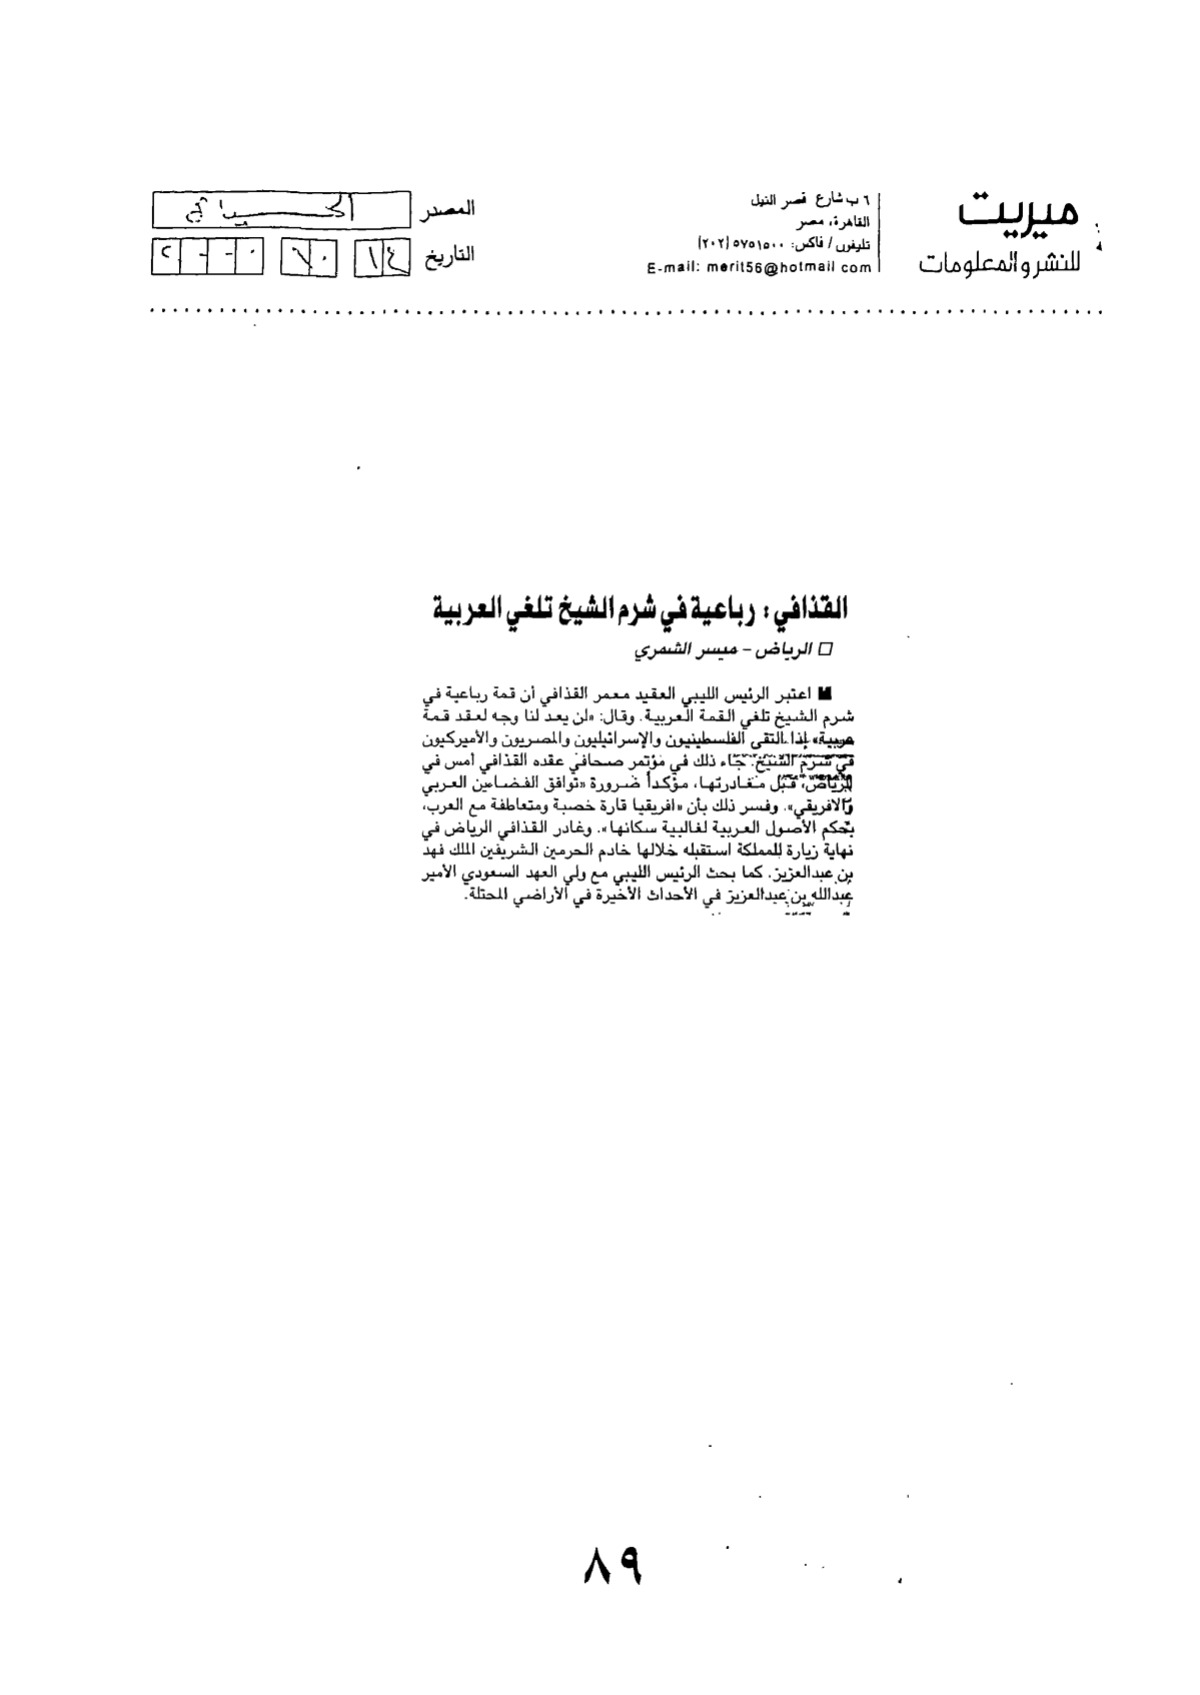 ميريت
للنشر والمعلومات
٦ ب شارع قصر النيل
القاهرة، مصر
تليفون / فاكس: ٥٧٥١٥٠٠ (٢٠٢)
E-mail: merit56@hotmail com
المصدر الحياة
التاريخ ١٤
القذافي: رباعية في شرم الشيخ تلغي العربية
□ الرياض - ميسر الشمري
■ اعتبر الرئيس الليبي العقيد معمر القذافي أن قمة رباعية في
شرم الشيخ تلغي القمة العربية. وقال: «لن يعد لنا وجه لعقد قمة
عربية» إذا التقى الفلسطينيون والإسرائيليون والمصريون والأميركيون
في شرم الشيخ. جاء ذلك في مؤتمر صحافي عقده القذافي أمس في
الرياض، قبل مغادرتها، مؤكداً ضرورة «توافق الفضاءين العربي
والافريقي». وفسر ذلك بأن «افريقيا قارة خصبة ومتعاطفة مع العرب،
بحكم الأصول العربية لغالبية سكانها». وغادر القذافي الرياض في
نهاية زيارة للمملكة استقبله خلالها خادم الحرمين الشريفين الملك فهد
بن عبدالعزيز. كما بحث الرئيس الليبي مع ولي العهد السعودي الأمير
عبدالله بن عبدالعزيز في الأحداث الأخيرة في الأراضي المحتلة.
٨٩